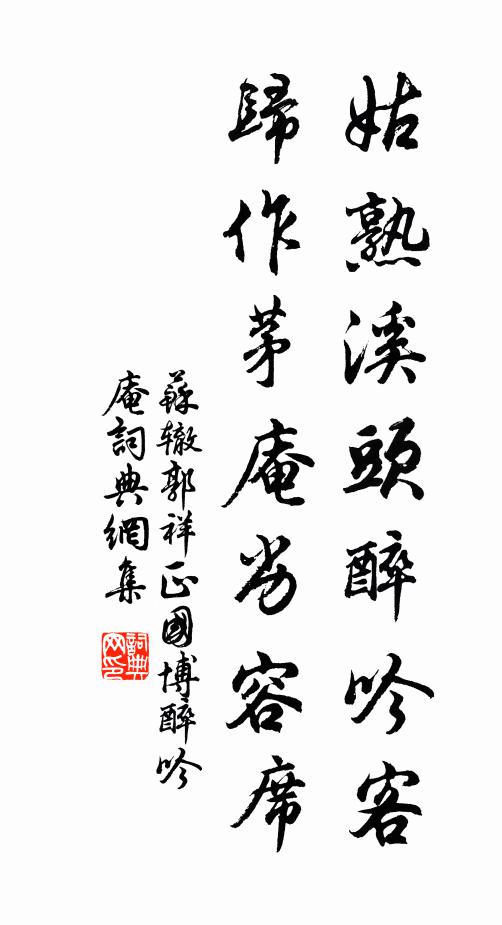 姑熟溪頭醉吟客
歸作茅庵劣容席
蘇轍郭祥正國博醉吟
庵詞典網集
詞典
网印